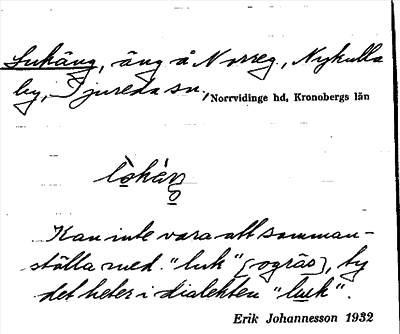 Lukäng, äng å Norreg., Nykulla
by, Tjureda sn.,
Norrvidinge hd, Kronobergs län
lòkàŋ
Kan inte vara att samman-
ställa med "luk" [ogräs], ty
det heter i dialekten "luk".
Erik Johannesson 1932